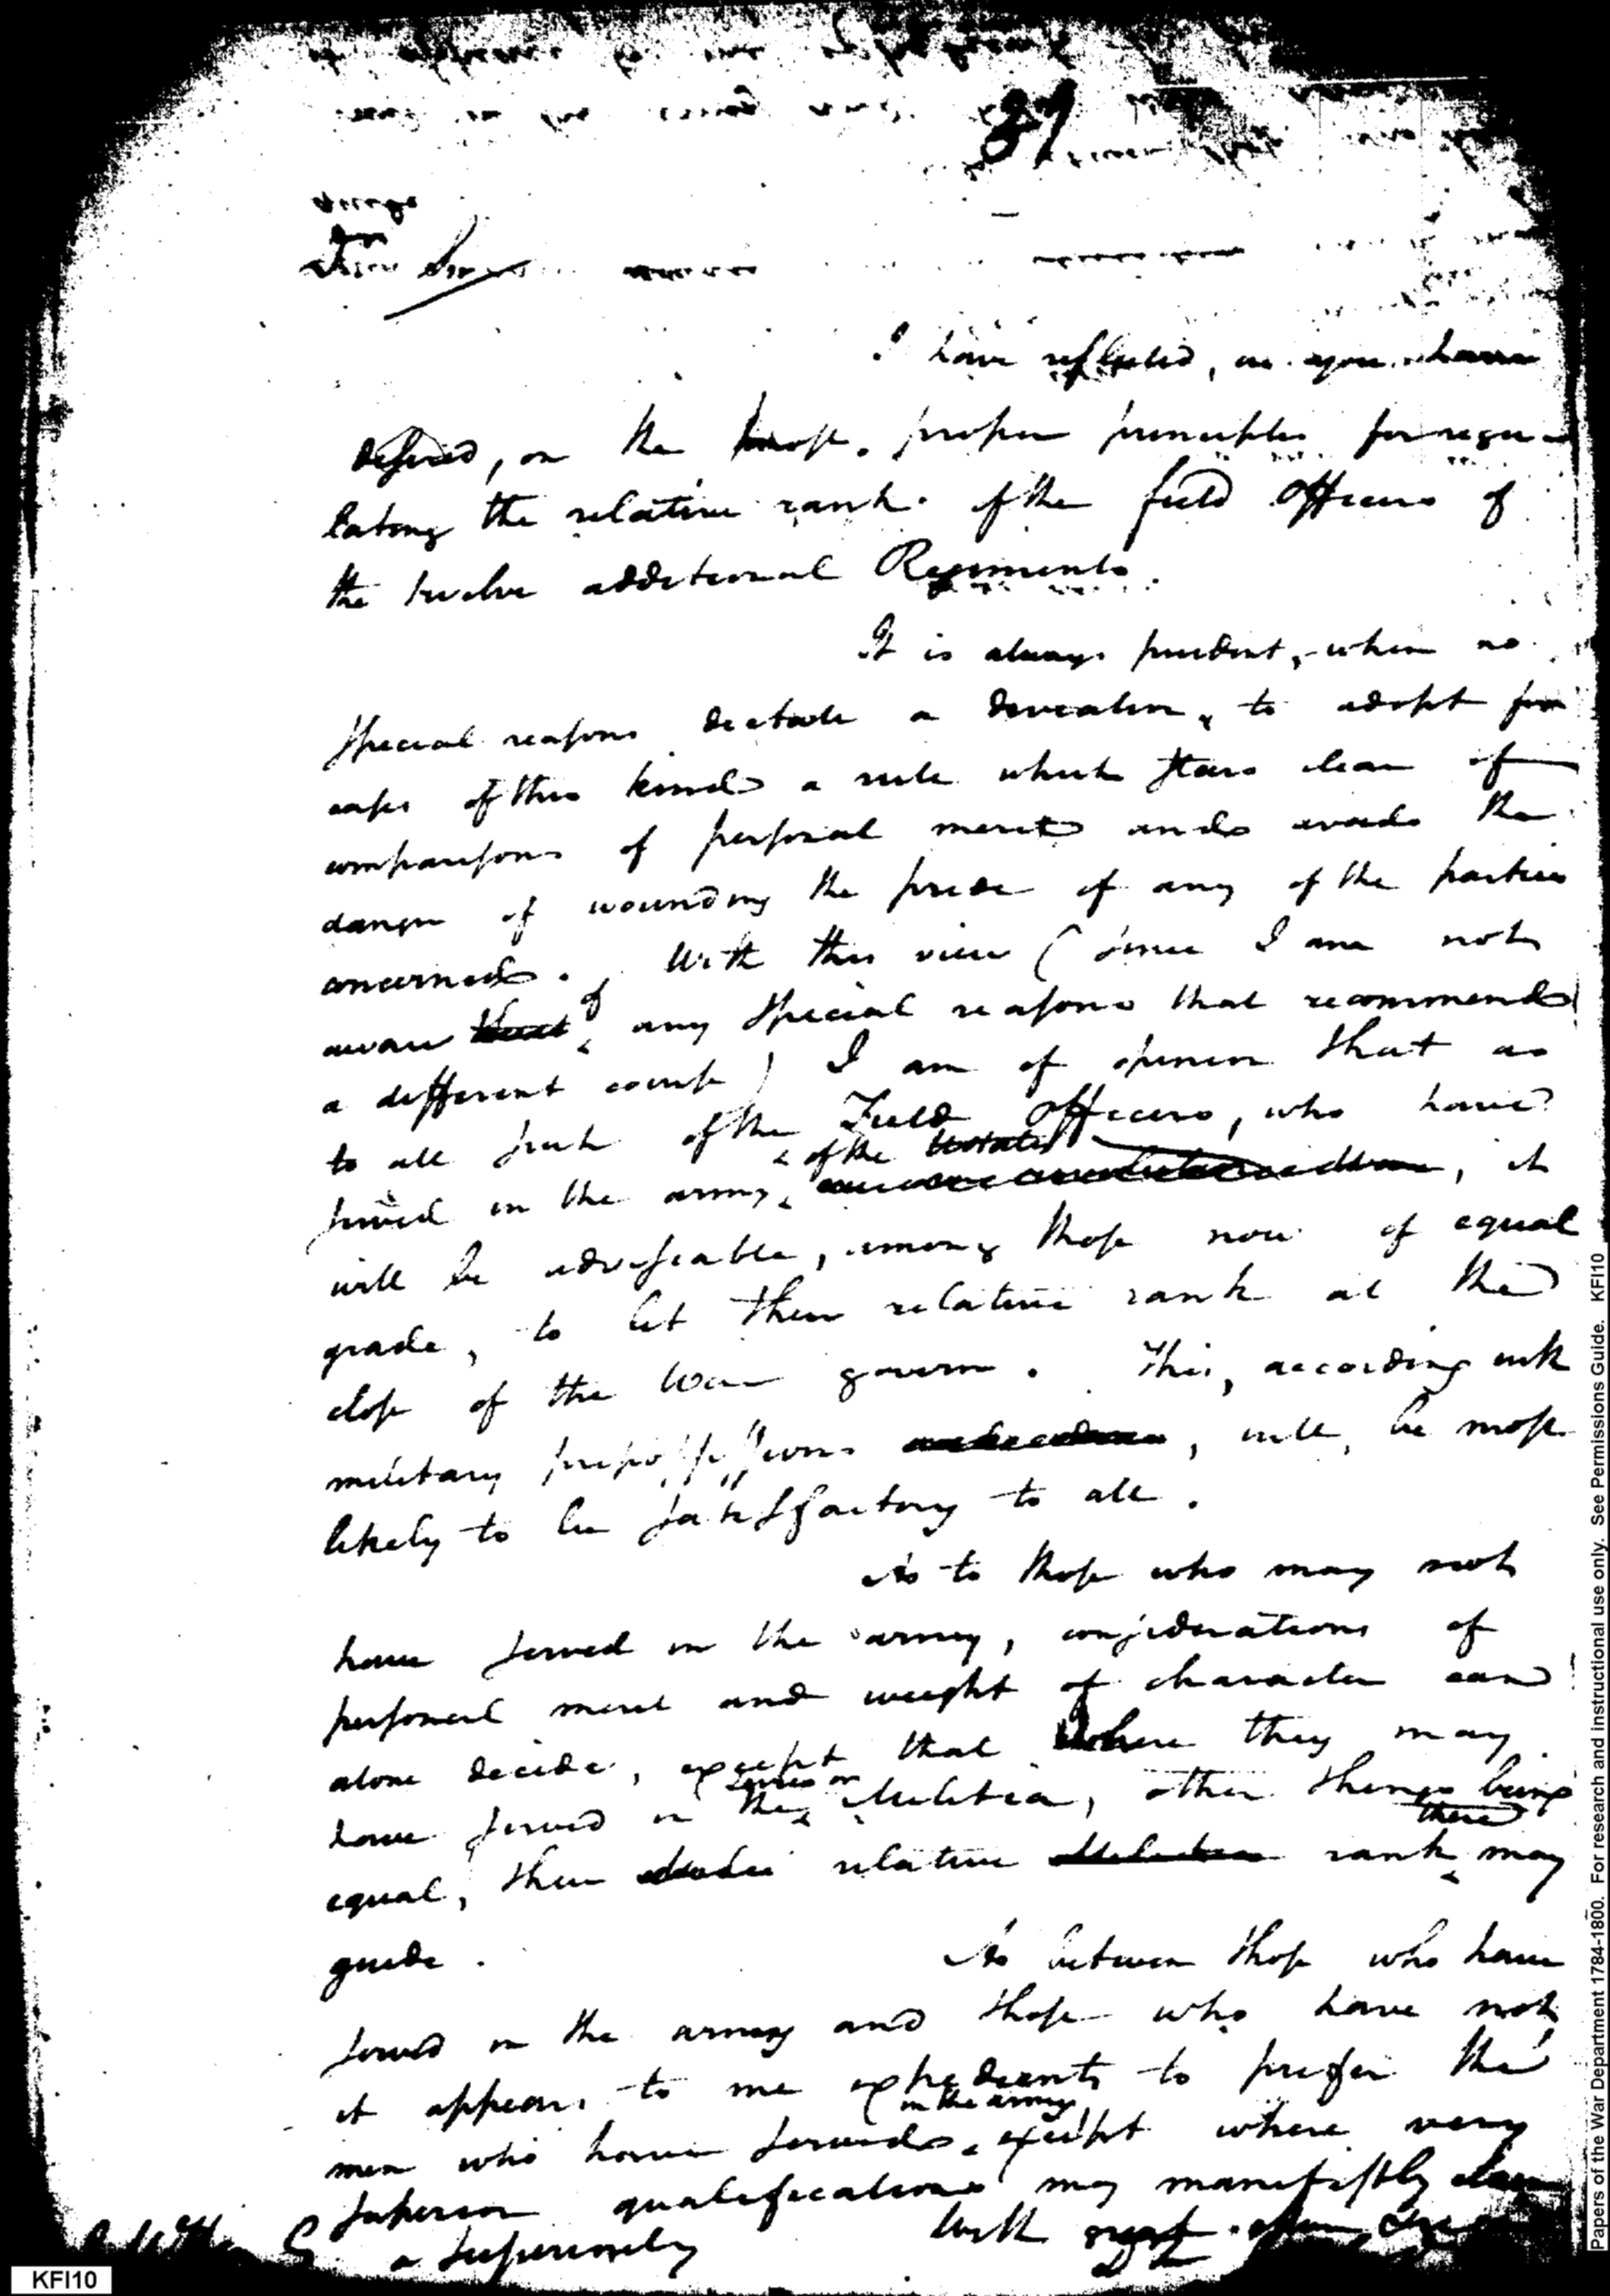 37
Dear Sir
I have reflected, as you have
desired, on the most proper principles for regu-
lating the relative rank of the field Officers of
the twelve additional Regiments.
It is always prudent, when no
special reasons dictate a deviation, to adopt for
cases of this kind a rule which stears clear of
comparisons of personal merit and avoids the
danger of wounding the pride of any of the parties
concerned. With this view (since I am not
aware that of any special reasons that recommend
a different course) I am of opinion that as
to all such of the Field Officers, who have
served in the army of the U States, it
will be adviseable, among those now of equal
grade, to let their relative rank at the
close of the War govern. This, according with
military prepossessions, will be most
likely to be satisfactory to all.
As to those who may not
have served in the army, considerations of
personal merit and weight of character can
alone decide, except that where they may
have served in the levies or Militia, other things being
equal, their relative rank there may
guide.
As between those who have
served in the army and those who have not,
it appears to me expedient to prefer the
men who have served in the army, except where very
superior qualifications may manifestly claim
a superiority
With great esteem
KFI10
Papers of the War Department 1784-1800. For research and instructional use only. See Permissions Guide. KFI10